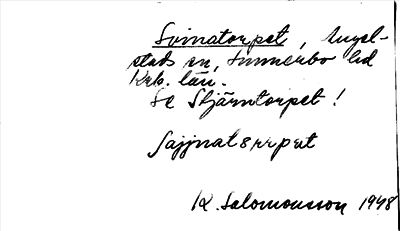 Svinatorpet, Angel-
stads sn, Sunnerbo hd
Krb. län.
Se Stjärntorpet!
K. Salomonsson 1948